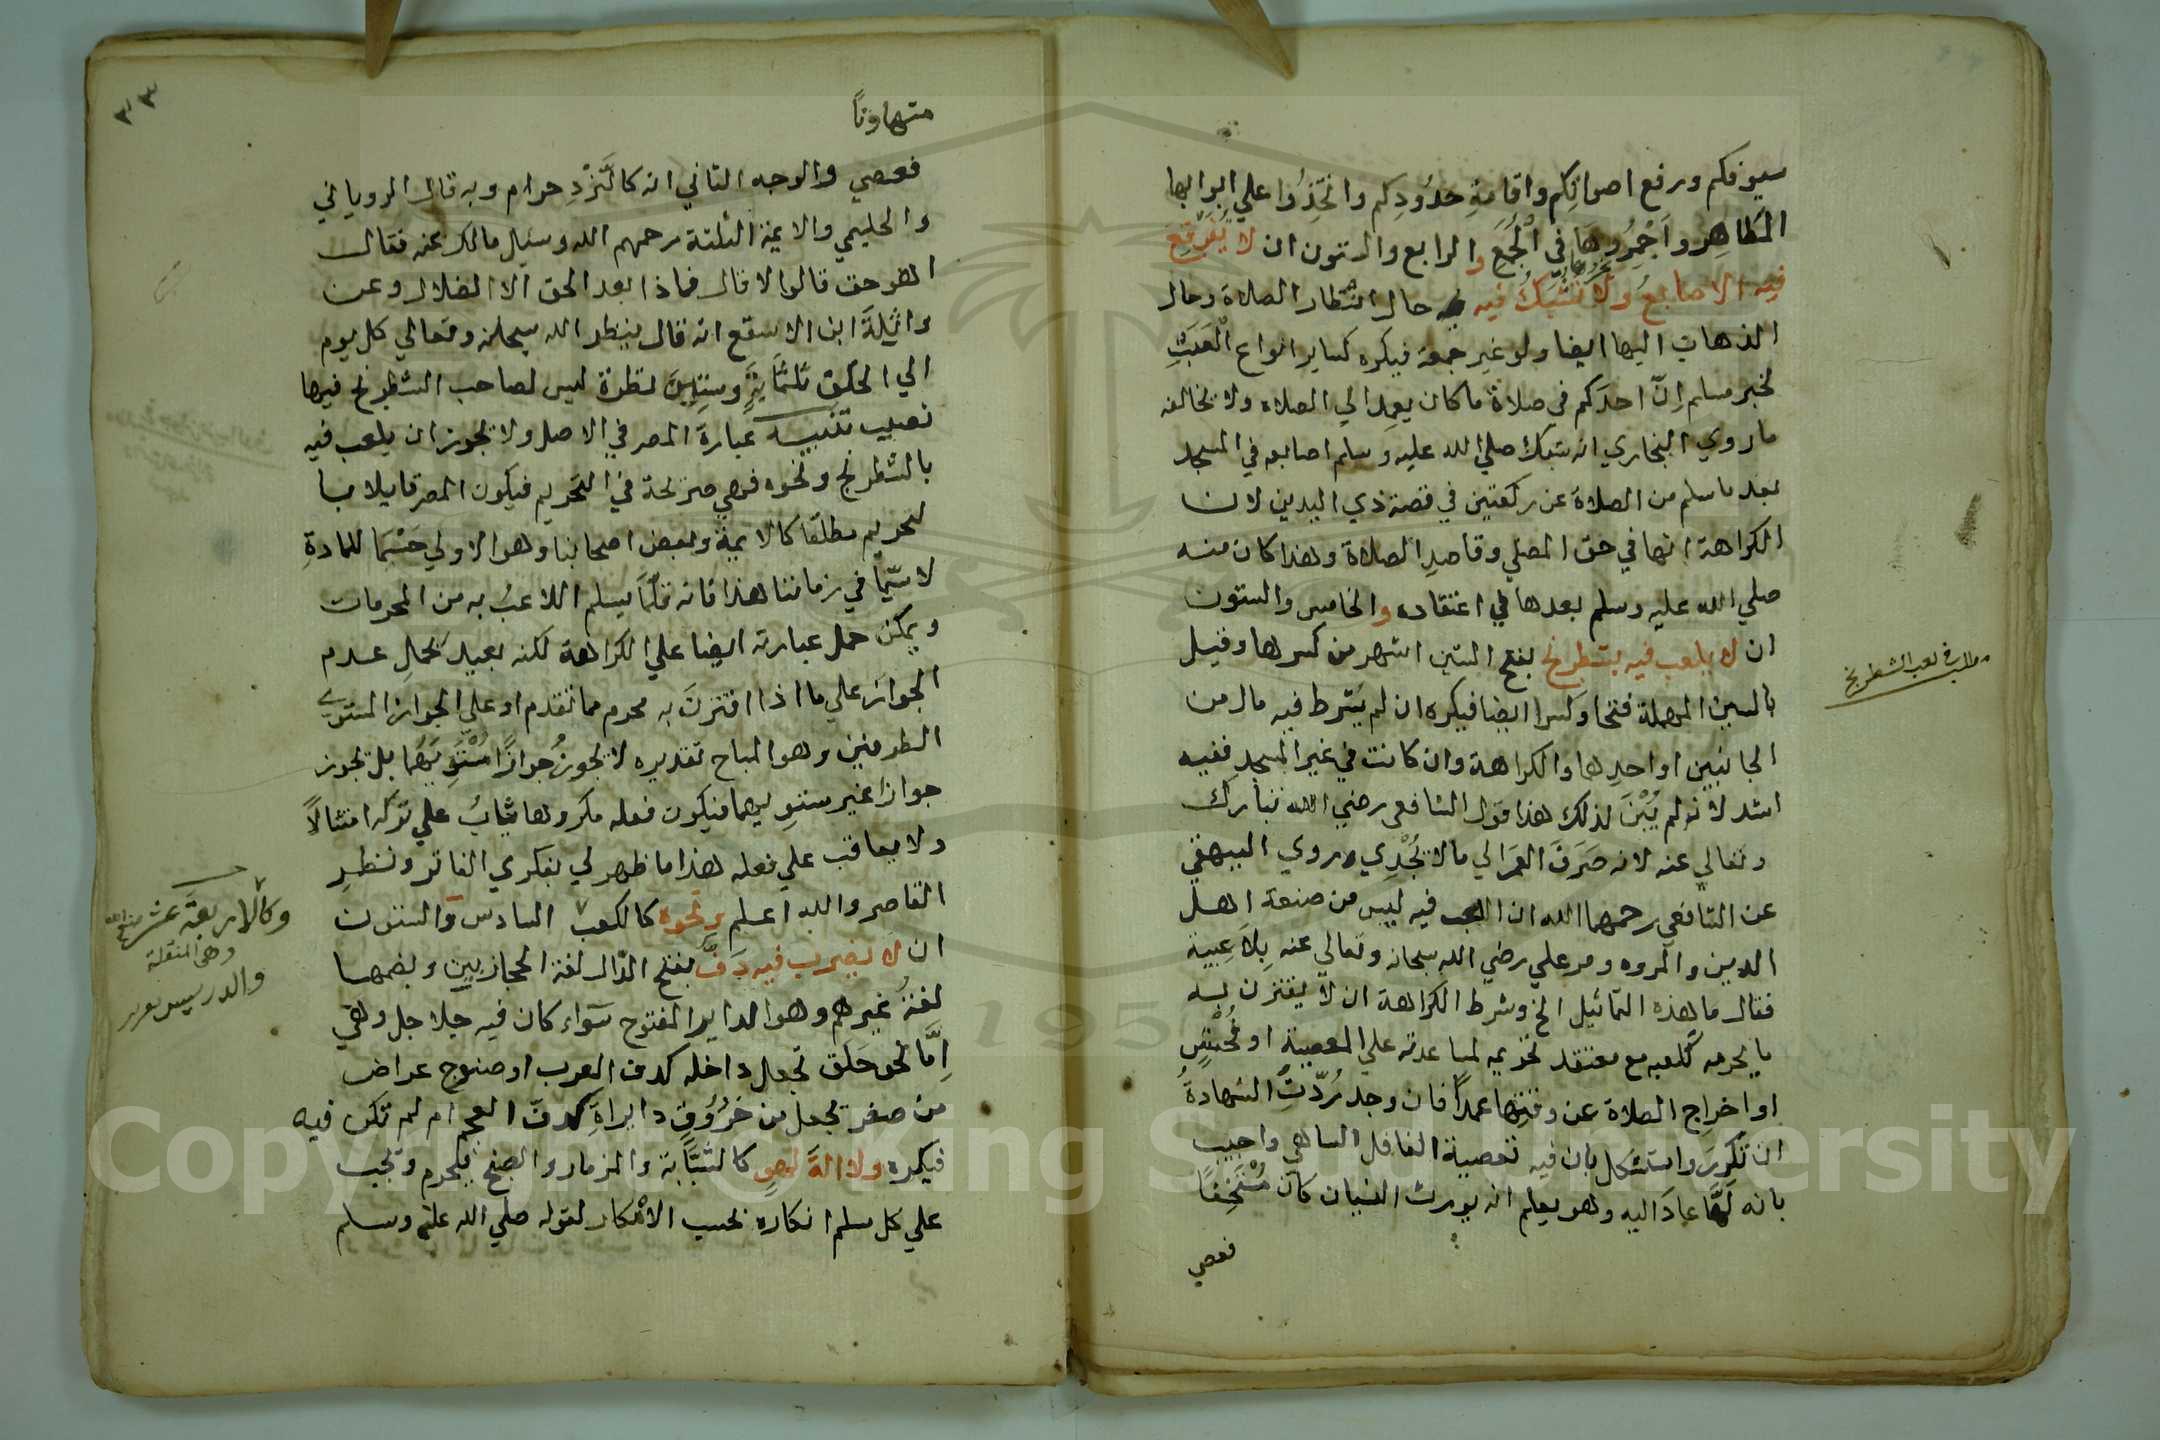 سيوفكم ورفع اصواتكم واقامة حدودكم واتخذوا علي ابوابها
المطاهر واجمروها في الجمع والرابع والستون ان لا يفرقع
فيه الاصابع ولا تشبك فيه حال انتظار الصلاة وحال
الذهاب اليها ايضا ولو غير جمعة فيكره كساير انواع العبث
لخبر مسلم إنّ احدكم في صلاة ما كان يعمد الي الصلاه ولا يخالفه
ما روي البخاري انه شبك صلي الله عليه وسلم اصابعه في المسجد
بعد ما سلم من الصلاة عن ركعتين في قصة ذي اليدين لان
الكراهة انما هي في حق المصلي وقاصد الصلاة وهذا كان منه
صلي الله عليه وسلم بعدها في اعتقاده والخامس والستون
ان لا يلعب فيه بشطرنج بفتح الشين اشهر من كسرها وقيل
بالسين المهملة فتحا وكسرا ايضا فيكره ان لم يشترط فيه مال من
الجانبين او احدهما والكراهة وان كانت في غير المسجد ففيه
اشد لانه لم يُبْنَ لذلك هذا قول الشافعي رضي الله تبارك
وتعالي عنه لانه صرف العمر الي ما لا يُجْدِي وروي البيهقي
عن الشافعي رحمهما الله ان اللعب فيه ليس من صنعة اهل
الدين والمروه ومر علي رضي الله سبحانه وتعالي عنه بلاعبيه
فقال ما هذه التماثيل الخ وشرط الكراهة ان لا يقترن به
ما يحرمه كلعبه مع معتقد تحريمه لمساعدته علي المعصية او فحش
او اخراج الصلاة عن وقتها عمداً فان وجد رُدّت الشهادة
ان تكرر واستشكل بان فيه تعصية الغافل الساهي واجيب
بانه لمّا عاد اليه وهو يعلم انه يورث النسيان كان مستخفا
فعصي
مطلب في لعب الشطرنج
٣٣
متهاونًا
فعصي والوجه الثاني انه كالنَّرْدِ حرام وبه قال الروياني
والحليمي والايمة الثلثة رحمهم الله وسيل مالك عنه فقال
اهو حق قالوا لا قال فماذا بعد الحق الا الضلال وعن
واثيلة ابن الاسقع انه قال ينظر الله سبحانه وتعالي كل يوم
الي الخلق ثلثماية وستين نظرة ليس لصاحب الشطرنج فيها
نصيب تنبيه عبارة المصر في الاصل ولا يجوز ان يلعب فيه
بالشطرنج ونحوه فهي صريحة في التحريم فيكون المصر قايلا با
لتحريم مطلقا كالايمة وبعض اصحابنا وهو الاولي حَسْمًا للمادةِ
لا سيّما في زماننا هذا فانه قلّما يسلم اللاعبُ به من المحرمات
ويمكن حمل عبارته ايضا علي الكراهة لكنه بعيد بحمل عدم
الجواز علي ما اذا اقترن به محرم مما تقدم او علي الجواز المستوي
الطرفين وهو المباح تقديره لا يجوز جوازًا مُسْتَوِيَهُما بل يجوز
جوازا غير مستو يهما فيكون فعله مكروها يثاب علي تركه امتثالاً
ولا يعاقب علي فعله هذا ما ظهر لي بفكري الفاتر ونظر
القاصر والله اعلم ونحوه كالكعب السادس والستون
ان لا يضرب فيه دف بفتح الدّال لغة الحجازيين وبضمها
لغةُ غيرهم وهو الداير المفتوح سَواء كان فيه جلاجل وهي
اِمَّا نحو حَلَق تجعل داخله كدف العرب او صنوج عراض
من صفر تجعل من خروق دايراةِ كدف العجم ام لم تكن فيه
فيكره ولا الةَ لهوٍ كالشبّابة والمزمار والصنج فيحرم ويجب
علي كل مسلم انكاره بحسب الامكار لقوله صلي الله عليه وسلم
وكالاربعة عشر
وهي المنقلة
والدريس
Copyright © King Saud University
195